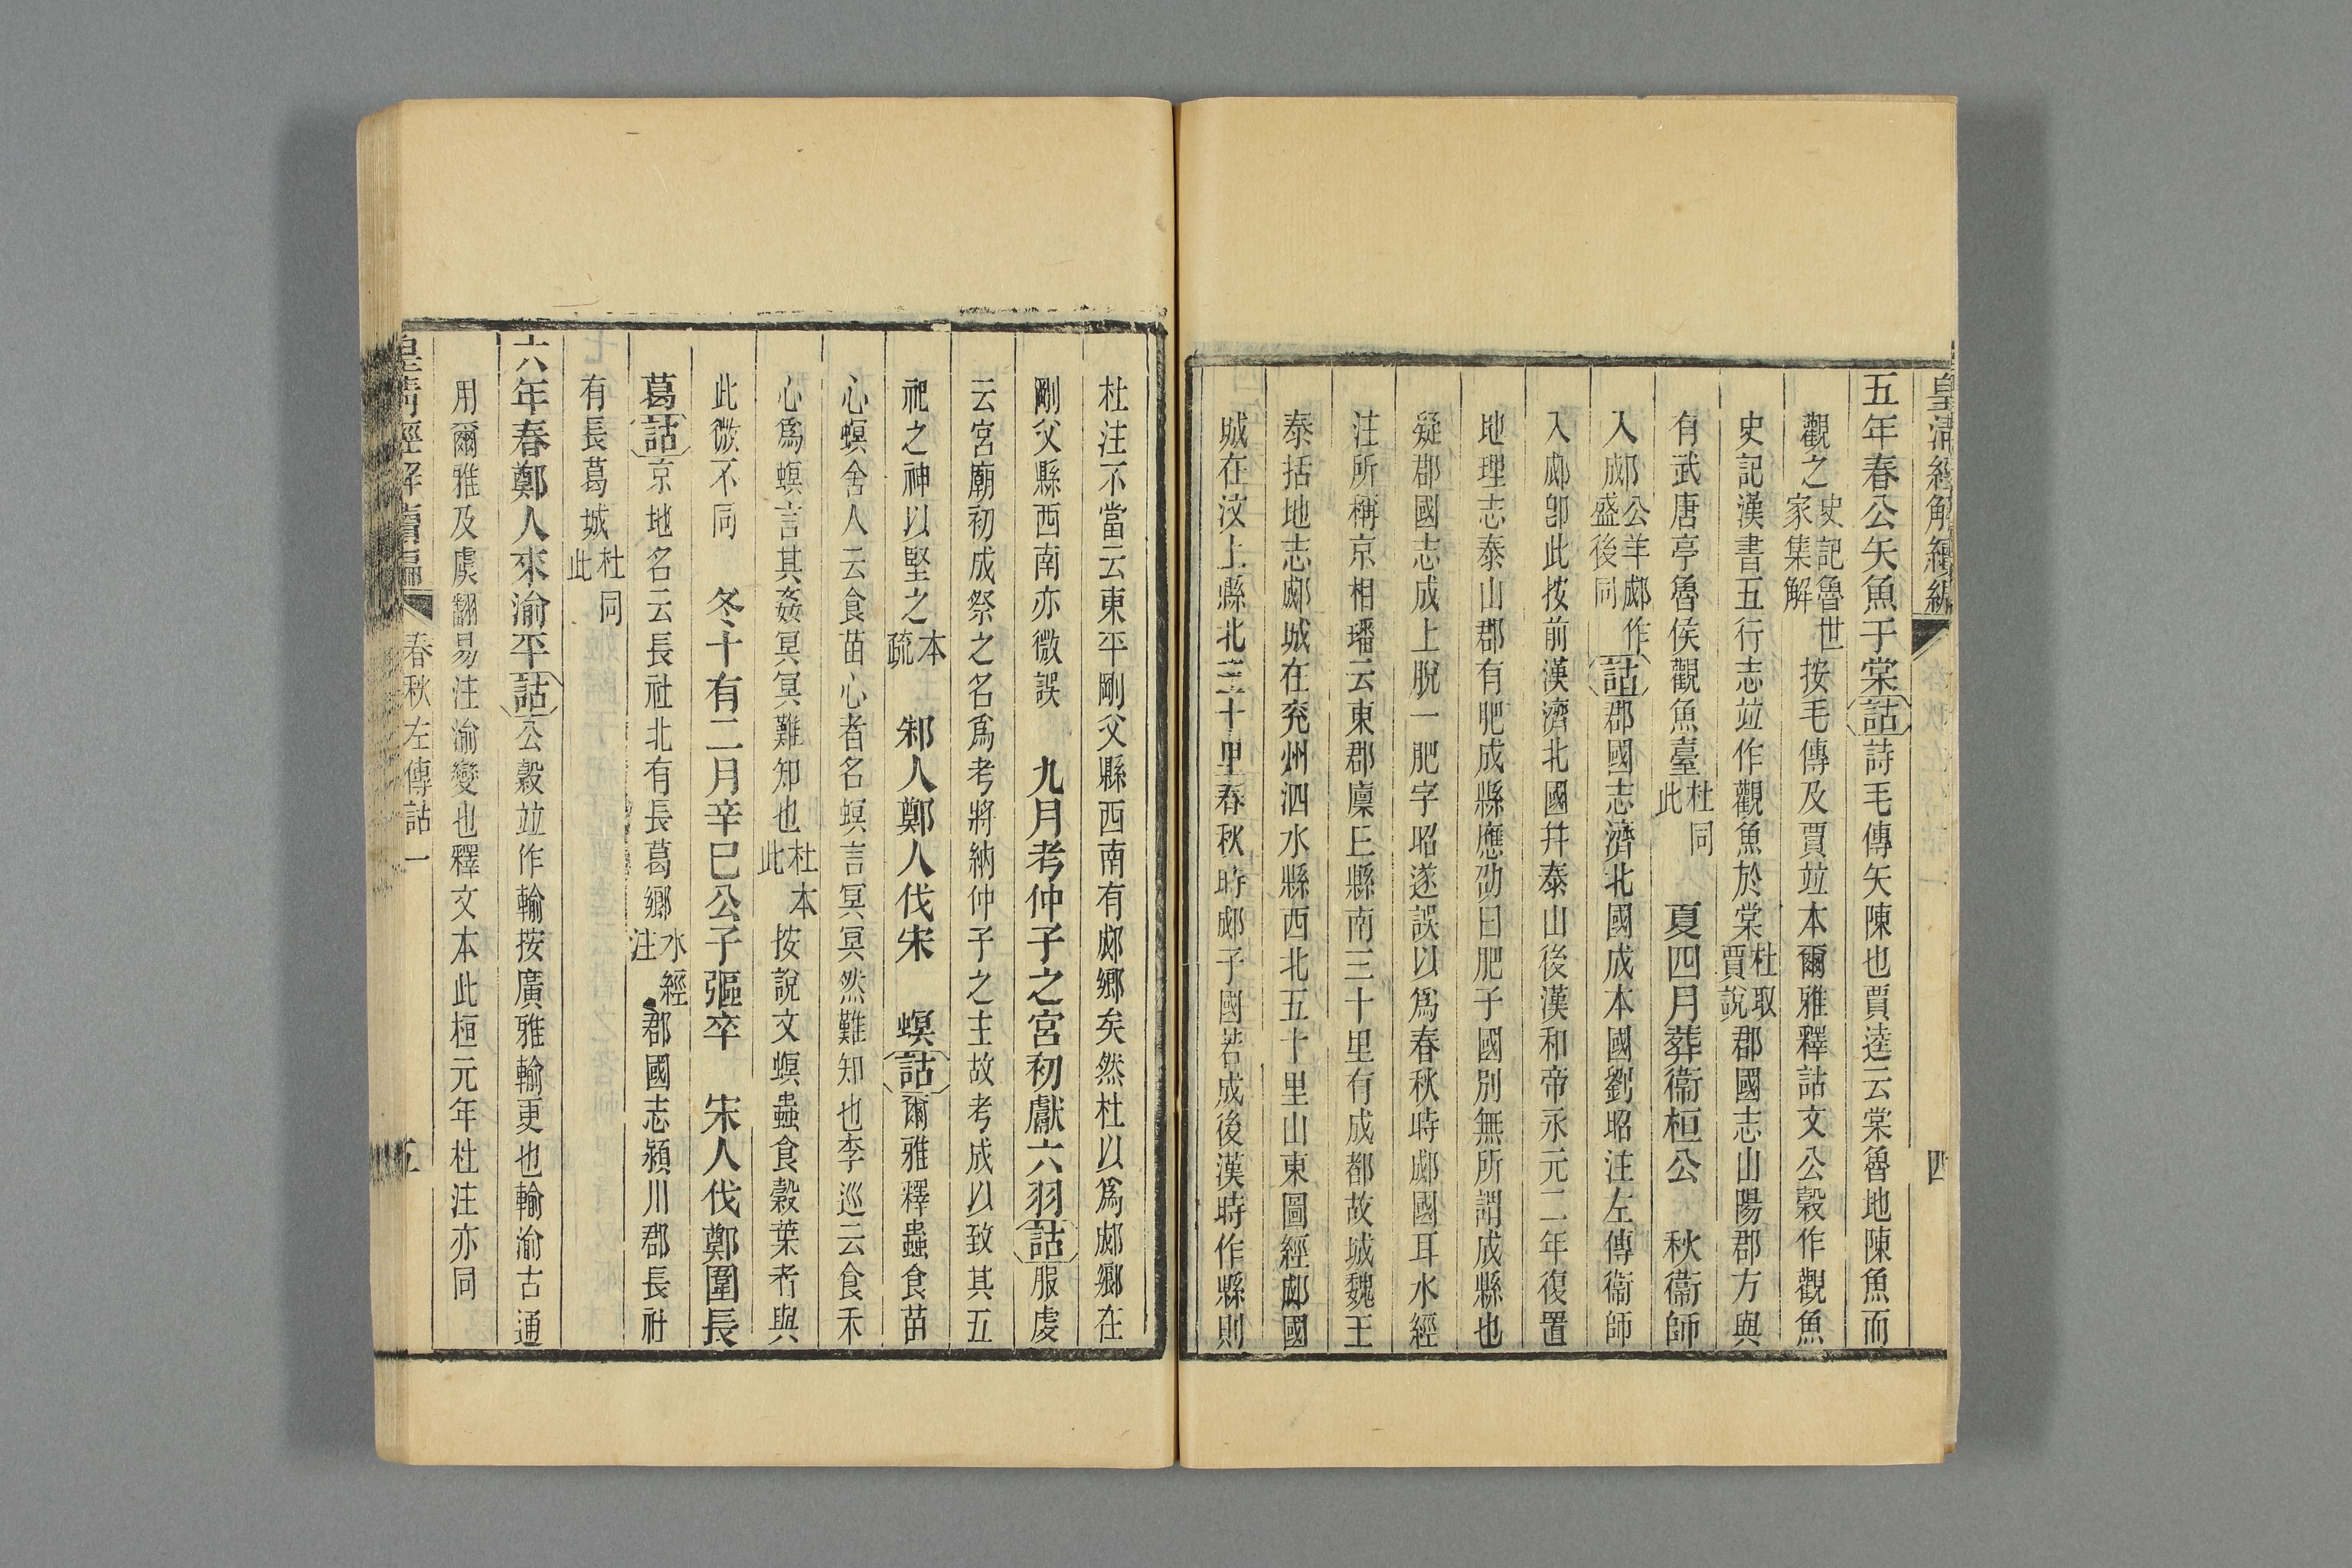 皇清經解續編 四
五年春公矢魚于棠詁詩毛傳矢陳也賈逵云棠魯地陳魚而
觀之史記魯世家集解按毛傳及賈竝本爾雅釋詁文公穀作觀魚
史記漢書五行志竝作觀魚於棠杜取賈說郡國志山陽郡方與
有武唐亭魯侯觀魚臺杜同此 夏四月葬衞桓公 秋衞師
入郕公羊郕作盛後同詁郡國志濟北國成本國劉昭注左傳衞師
入郕卽此按前漢濟北國幷泰山後漢和帝永元二年復置
地理志泰山郡有肥成縣應劭曰肥子國別無所謂成縣也
疑郡國志成上脫一肥字昭遂誤以爲春秋時郕國耳水經
注所稱京相璠云東郡廩丘縣南三十里有成都故城魏王
泰括地志郕城在兗州泗水縣西北五十里山東圖經郕國
城在汶上縣北二十里春秋時郕子國若成後漢時作縣則
杜注不當云東平剛父縣西南有郕鄉矣然杜以爲郕鄉在
剛父縣西南亦微誤 九月考仲子之宮初獻六羽詁服虔
云宮廟初成祭之名爲考將納仲子之主故考成以致其五
祀之神以堅之本疏 邾人鄭人伐宋 螟詁爾雅釋蟲食苗
心螟舍人云食苗心者名螟言冥冥然難知也李巡云食禾
心爲螟言其姦冥冥難知也杜本此按說文螟蟲食穀葉者與
此微不同 冬十有二月辛巳公子彄卒 宋人伐鄭圍長
葛詁京地名云長社北有長葛鄉水經注郡國志潁川郡長社
有長葛城杜同此
六年春鄭人來渝平詁公穀竝作輸按廣雅輸更也輸渝古通
用爾雅及虞翻易注渝變也釋文本此桓元年杜注亦同
皇清經解續編 春秋左傳詁一 五